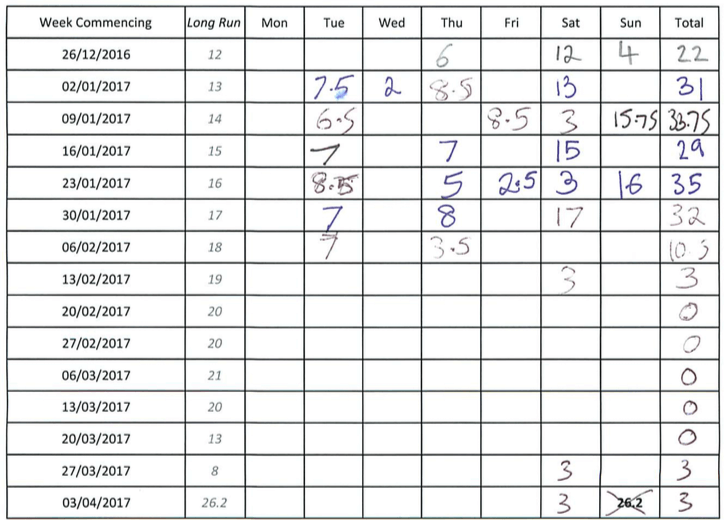 Week Commencing Long Run Mon Tue Wed Thu Fri Sat Sun Total
26/12/2016 12 6 12 4 22
02/01/2017 13 7.5 2 8.5 13 31
09/01/2017 14 6.5 8.5 3 15.75 33.75
16/01/2017 15 7 7 15 29
23/01/2017 16 8.5 5 2.5 3 16 35
30/01/2017 17 7 8 17 32
06/02/2017 18 7 3.5 10.5
13/02/2017 19 3 3
20/02/2017 20 0
27/02/2017 20 0
06/03/2017 21 0
13/03/2017 20 0
20/03/2017 13 0
27/03/2017 8 3 3
03/04/2017 26.2 3 26.2 3